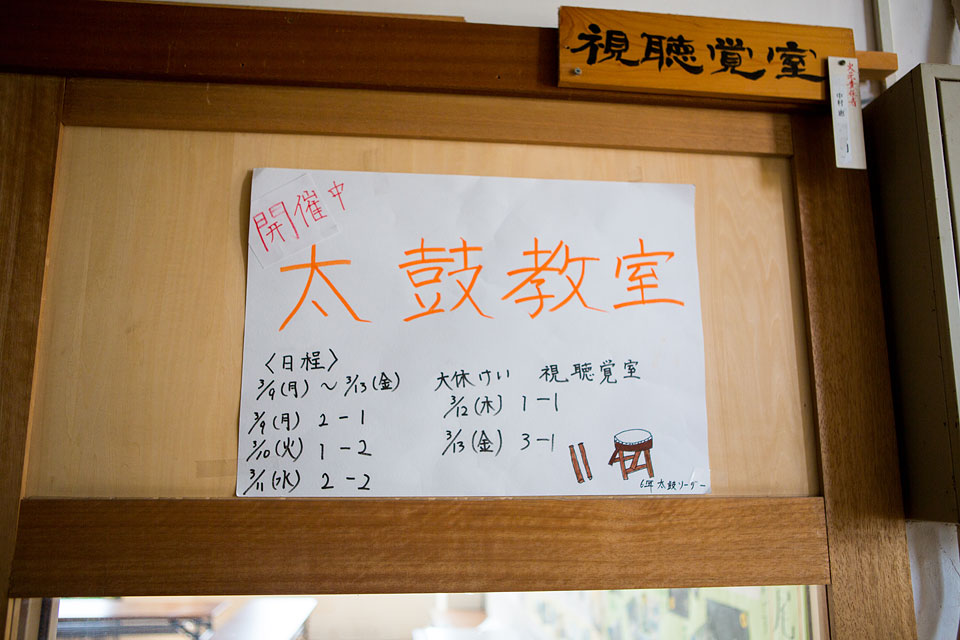 視聴覚室
火元責任者
中村
開催中
太鼓教室
〈日程〉
3/9(月)～3/13(金) 大休けい 視聴覚室
3/9(月) 2-1
3/10(火) 1-2
3/11(水) 2-2
3/12(木) 1-1
3/13(金) 3-1
6年 太鼓リーダー